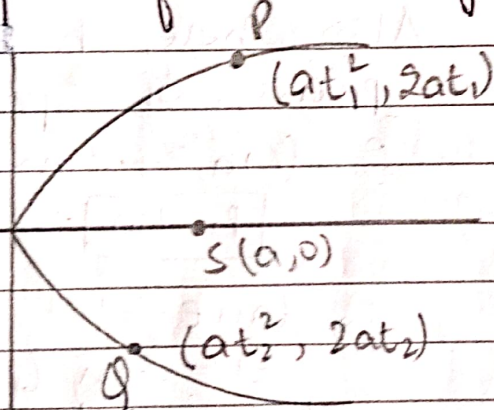 P
(at₁², 2at₁)
S(a,0)
(at₂², 2at₂)
Q